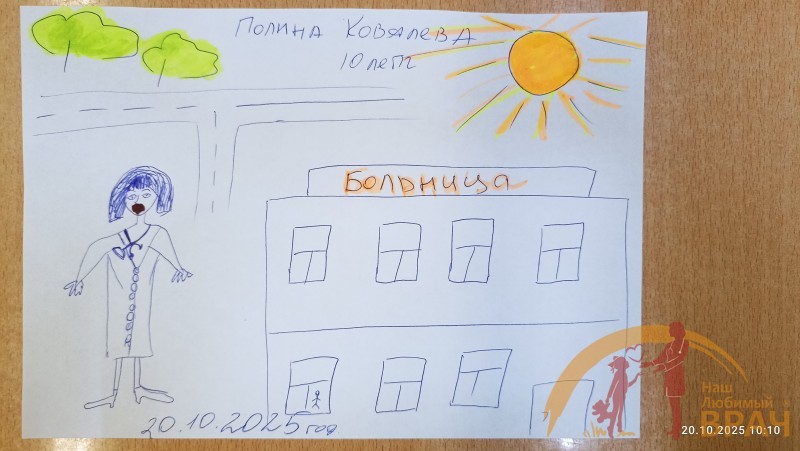 Полина Ковалева
10 лет
Больница
20.10.2025 год
Наш
Любимый
ВРАЧ
20.10.2025 10:10